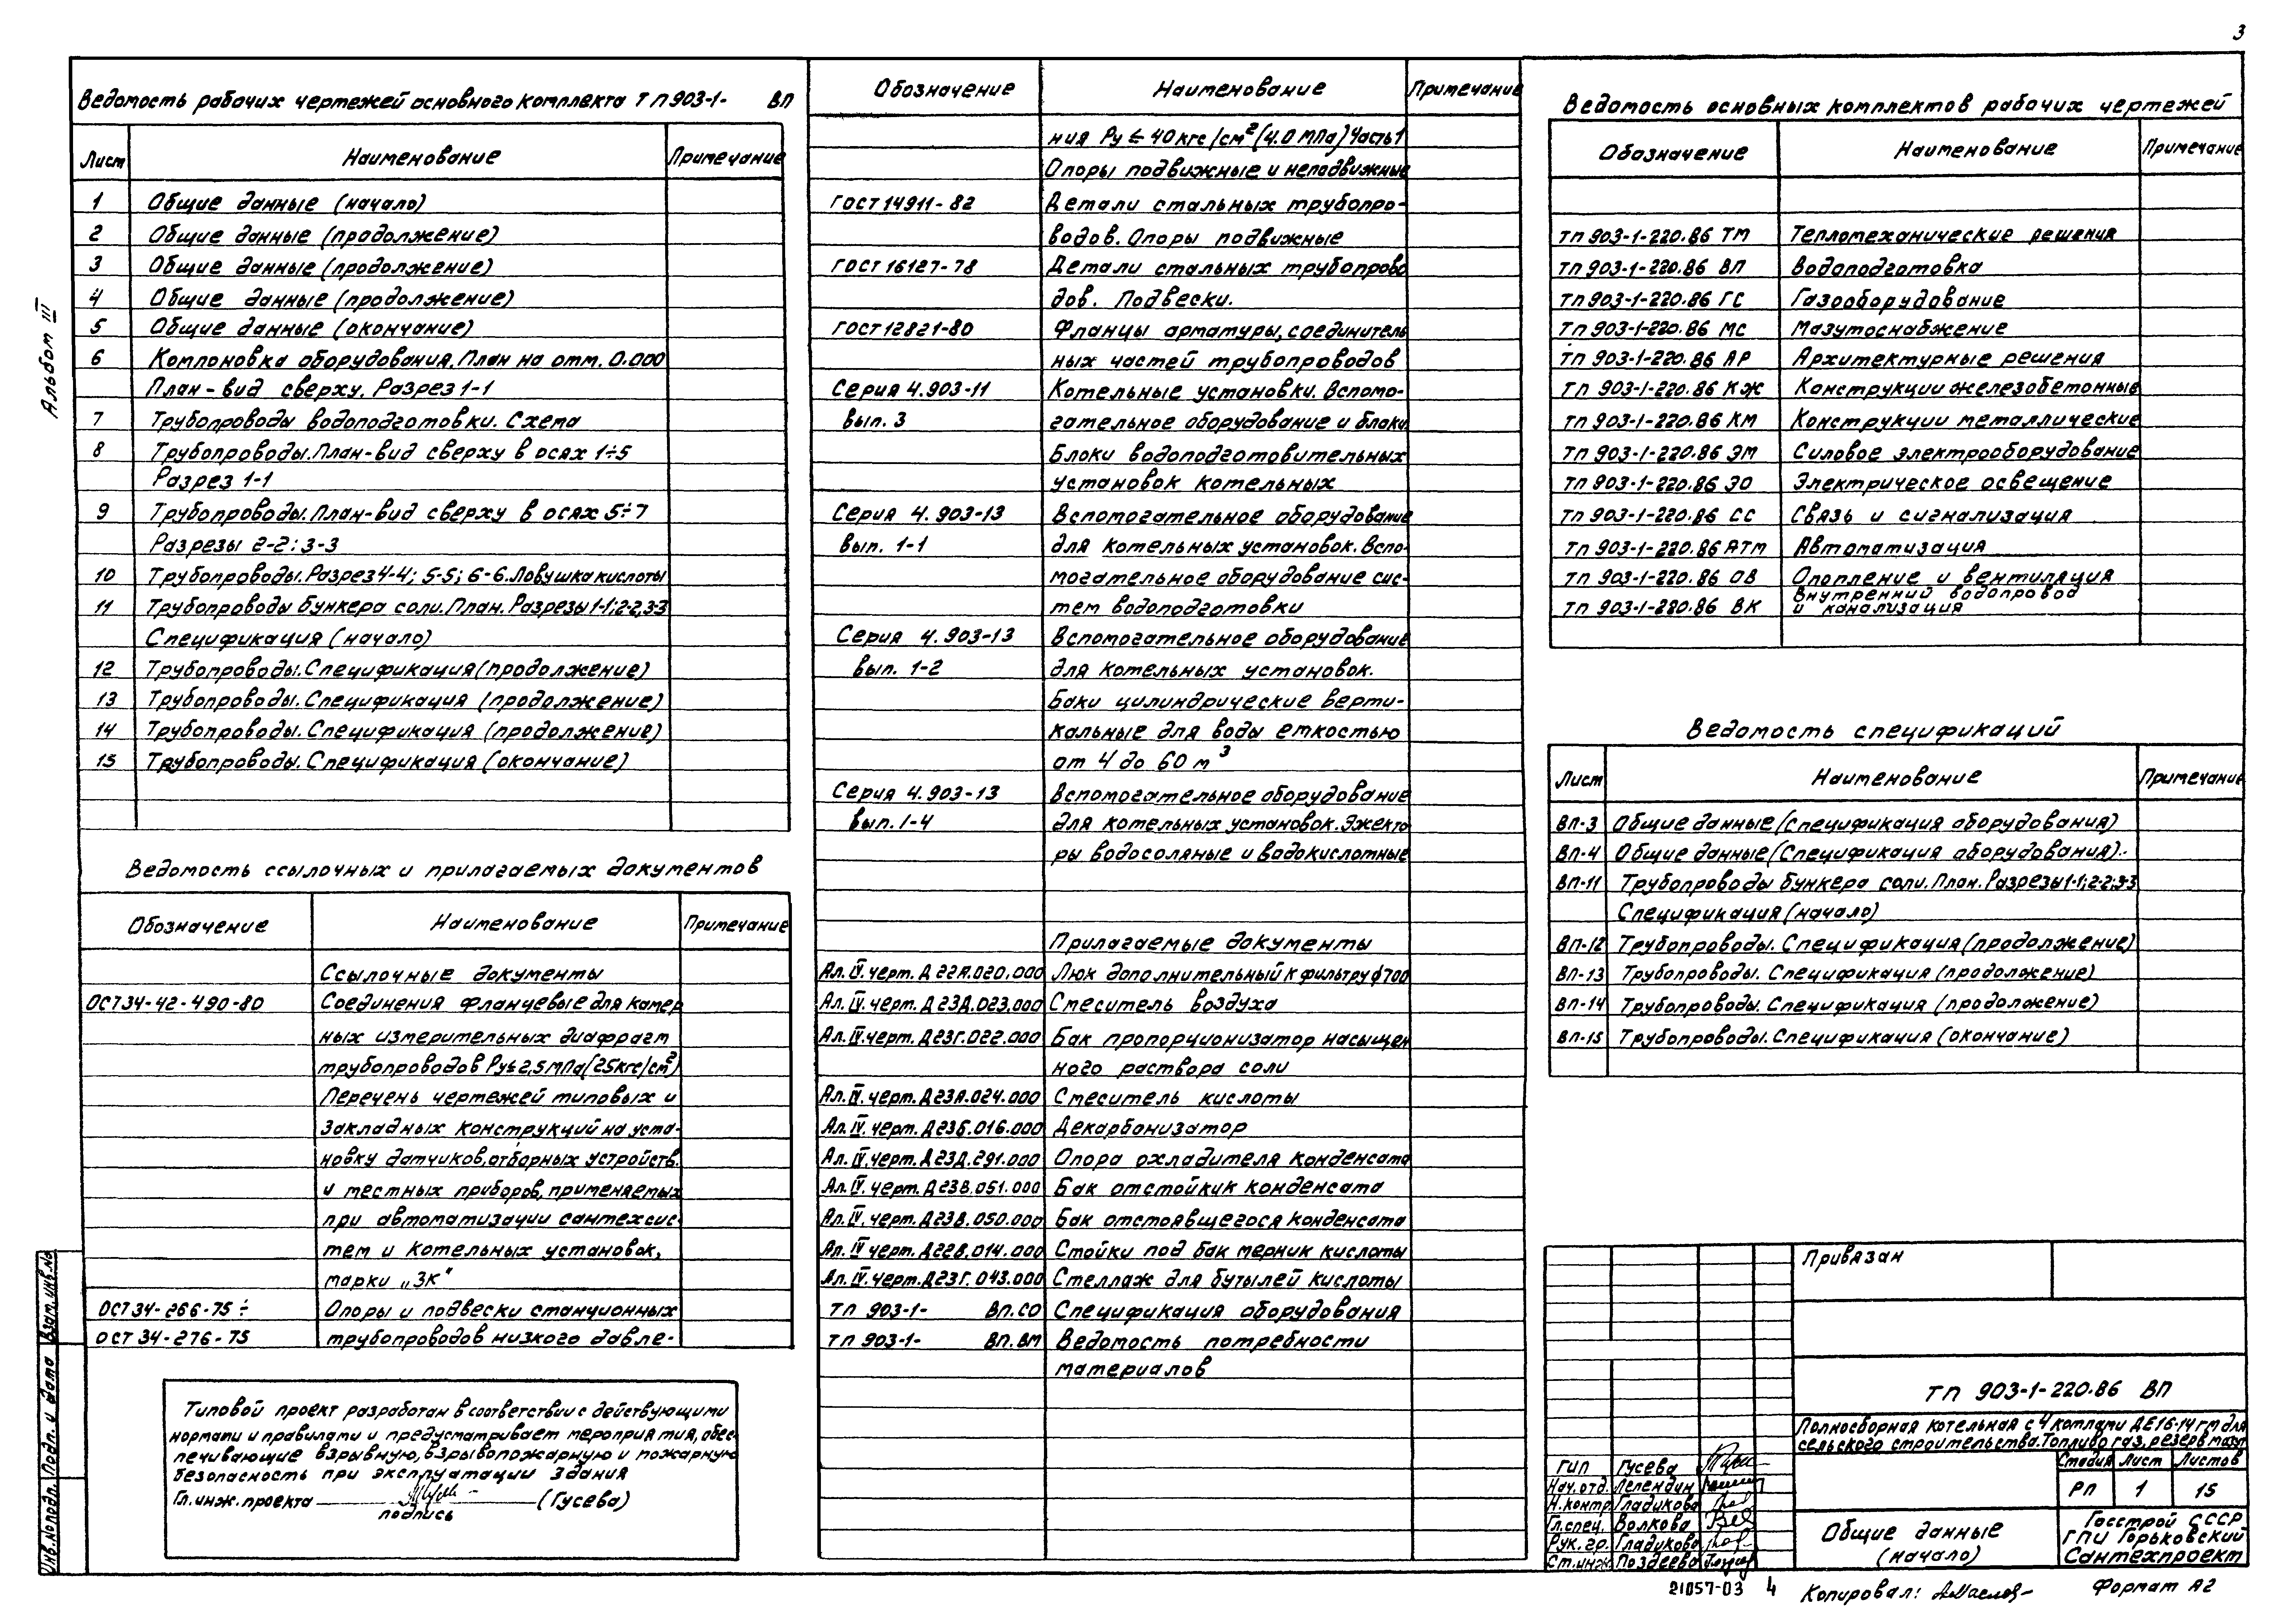 3
Альбом III
Ведомость рабочих чертежей основного комплекта ТП 903-1- ВП
Лист Наименование Примечание
1 Общие данные (начало)
2 Общие данные (продолжение)
3 Общие данные (продолжение)
4 Общие данные (продолжение)
5 Общие данные (окончание)
6 Компоновка оборудования. План на отм. 0.000
План-вид сверху. Разрез 1-1
7 Трубопроводы водоподготовки. Схема
8 Трубопроводы. План-вид сверху в осях 1÷5
Разрез 1-1
9 Трубопроводы. План-вид сверху в осях 5÷7
Разрезы 2-2; 3-3
10 Трубопроводы. Разрез 4-4; 5-5; 6-6. Ловушка кислоты
11 Трубопроводы бункера соли. План. Разрезы 1-1; 2-2, 3-3
Спецификация (начало)
12 Трубопроводы. Спецификация (продолжение)
13 Трубопроводы. Спецификация (продолжение)
14 Трубопроводы. Спецификация (продолжение)
15 Трубопроводы. Спецификация (окончание)
Ведомость ссылочных и прилагаемых документов
Обозначение Наименование Примечание
Ссылочные документы
ОСТ 34-42-490-80 Соединения фланцевые для камер
ных измерительных диафрагм
трубопроводов Ру≤2,5 МПа (25 кгс/см²)
Перечень чертежей типовых и
закладных конструкций на уста-
новку датчиков, отборных устройств.
и местных приборов, применяемых
при автоматизации сантехсис-
тем и котельных установок,
марки „ЗК"
ОСТ 34-266-75 ÷ Опоры и подвески станционных
ОСТ 34-276-75 трубопроводов низкого давле-
Типовой проект разработан в соответствии с действующими
нормами и правилами и предусматривает мероприятия, обес-
печивающие взрывную, взрывопожарную и пожарную
безопасность при эксплуатации здания
Гл. инж. проекта (Гусева)
подпись
Обозначение Наименование Примечание
ния Ру ≤ 40 кгс/см² (4.0 МПа) Часть 1
Опоры подвижные и неподвижные
ГОСТ 14911-82 Детали стальных трубопро-
водов. Опоры подвижные
ГОСТ 16127-78 Детали стальных трубопрово
дов. Подвески.
ГОСТ 12821-80 Фланцы арматуры, соединитель
ных частей трубопроводов
Серия 4.903-11 Котельные установки. Вспомо-
вып. 3 гательное оборудование и блоки.
Блоки водоподготовительных
установок котельных
Серия 4.903-13 Вспомогательное оборудование
вып. 1-1 для котельных установок. Вспо-
могательное оборудование сис-
тем водоподготовки
Серия 4.903-13 Вспомогательное оборудование
вып. 1-2 для котельных установок.
Баки цилиндрические верти-
кальные для воды емкостью
от 4 до 60 м³
Серия 4.903-13 Вспомогательное оборудование
вып. 1-4 для котельных установок. Эжекто
ры водосоляные и водокислотные
Прилагаемые документы
Ал. IV. черт. Д22А.020.000 Люк дополнительный к фильтру ф700
Ал. IV. черт. Д23Д.023.000 Смеситель воздуха
Ал. IV. черт. Д23Г.022.000 Бак пропорционизатор насыщен
ного раствора соли
Ал. IV. черт. Д23А.024.000 Смеситель кислоты
Ал. IV. черт. Д23Б.016.000 Декарбонизатор
Ал. IV. черт. Д23Д.291.000 Опора охладителя конденсата
Ал. IV. черт. Д23В.051.000 Бак отстойкик конденсата
Ал. IV. черт. Д23В.050.000 Бак отстоявщегося конденсата
Ал. IV черт. Д22В.014.000 Стойки под бак мерник кислоты
Ал. IV. черт. Д23Г.043.000 Стеллаж для бутылей кислоты
ТП 903-1- ВП.СО Спецификация оборудования
ТП 903-1- ВП.ВМ Ведомость потребности
материалов
Ведомость основных комплектов рабочих чертежей
Обозначение Наименование Примечание
ТП 903-1-220.86 ТМ Тепломеханические решения
ТП 903-1-220.86 ВП Водоподготовка
ТП 903-1-220.86 ГС Газооборудование
ТП 903-1-220.86 МС Мазутоснабжение
ТП 903-1-220.86 АР Архитектурные решения
ТП 903-1-220.86 КЖ Конструкции железобетонные
ТП 903-1-220.86 КМ Конструкции металлические
ТП 903-1-220.86 ЭМ Силовое электрооборудование
ТП 903-1-220.86 ЭО Электрическое освещение
ТП 903-1-220.86 СС Связь и сигнализация
ТП 903-1-220.86 АТМ Автоматизация
ТП 903-1-220.86 ОВ Опопление и вентиляция
ТП 903-1-220.86 ВК Внутренний водопровод
и канализация
Ведомость спецификаций
Лист Наименование Примечание
ВП-3 Общие данные (Спецификация оборудования)
ВП-4 Общие данные (Спецификация оборудования).
ВП-11 Трубопроводы бункера соли. План. Разрезы 1-1; 2-2; 3-3
Спецификация (начало)
ВП-12 Трубопроводы. Спецификация (продолжение)
ВП-13 Трубопроводы. Спецификация (продолжение)
ВП-14 Трубопроводы. Спецификация (продолжение)
ВП-15 Трубопроводы. Спецификация (окончание)
Привязан
ТП 903-1-220.86 ВП
Полносборная котельная с 4 котлами ДЕ16-14 гм для
сельского строительства. Топливо газ, резерв мазут
Стадия Лист Листов
РП 1 15
ГИП Гусева
Нач. отд. Лепендин
Н. контр. Гладикова
Гл. спец. Волкова
Рук. гр. Гладикова
Ст. инж. Поздеева
Общие данные
(начало)
Госстрой СССР
ГПИ Горьковский
Сантехпроект
21057-03 4
Копировал:
Формат А2
Инв. № подл. Подп. и дата Взам. инв. №